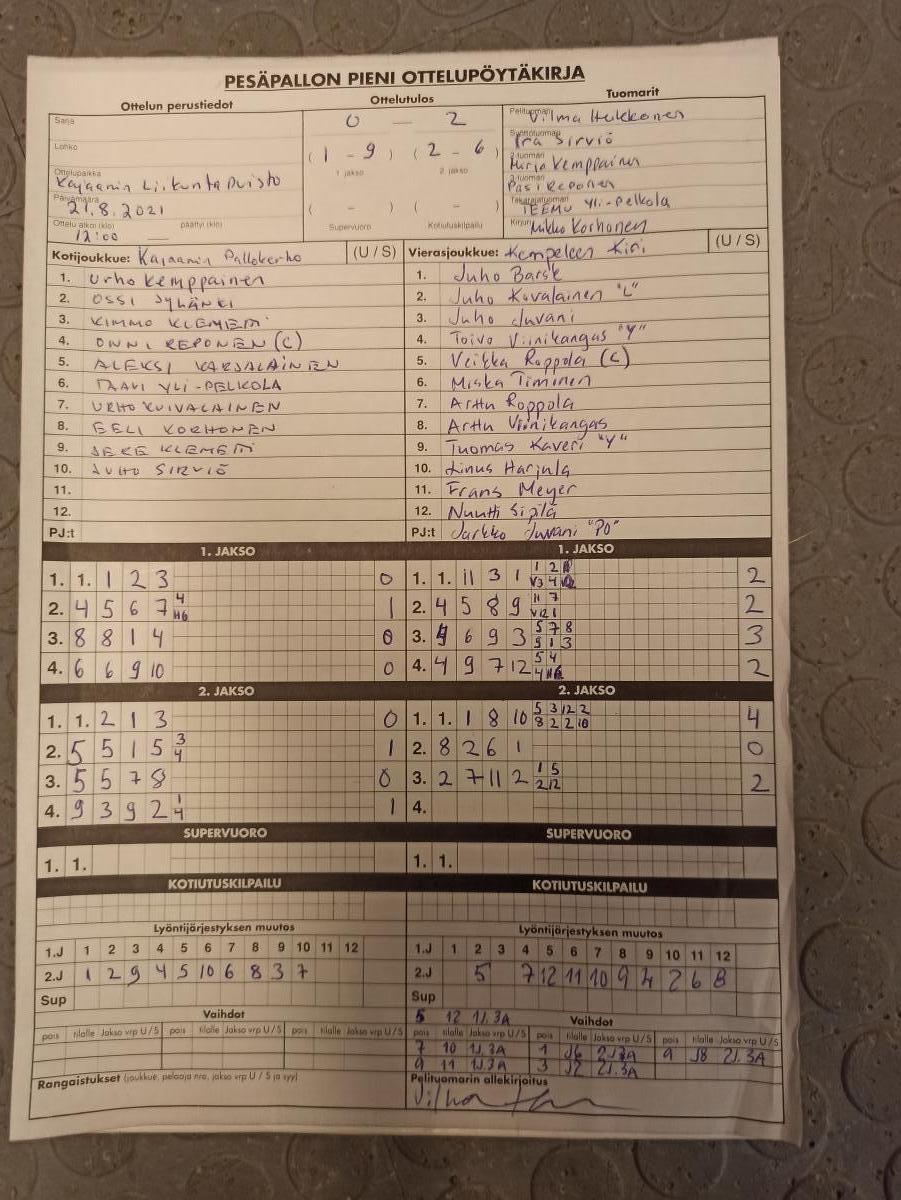 PESÄPALLON PIENI OTTELUPÖYTÄKIRJA
Ottelun perustiedot Ottelutulos Tuomarit
Sarja
0 — 2
Pelituomari Vilma Heikkonen
Syöttötuomari Ira Sirviö
Lohko
( 1 - 9 ) ( 2 - 6 )
2-tuomari Mirja Kemppainen
Ottelupaikka Kajaanin Liikuntapuisto
1 jakso 2. jakso
3-tuomari Pasi Reponen
Päivämäärä 21.8.2021
( - ) ( - )
Takarajatuomari TEEMU Yli-Pelkola
Ottelu alkoi (klo) 12:00 päättyi (klo)
Supervuoro Kotiutuskilpailu
Kirjuri Mikko Korhonen
Kotijoukkue: Kajaanin Pallokerho (U / S)
1. Urho Kemppainen
2. OSSI JYLHÄNKI
3. KIMMO KLEMETTI
4. ONNI REPONEN (C)
5. ALEKSI KARJALAINEN
6. TAAVI YLI-PELKOLA
7. URHO KUIVALAINEN
8. EELI KORHONEN
9. JERE KLEMETTI
10. JUHO SIRVIÖ
11.
12.
PJ:t
Vierasjoukkue: Kempeleen Kiri (U / S)
1. Juho Barsk
2. Juho Kovalainen "L"
3. Juho Juvani
4. Toivo Viinikangas "Y"
5. Veikka Roppola (C)
6. Miska Timinen
7. Arttu Roppola
8. Arttu Viinikangas
9. Tuomas Kaveri "Y"
10. Linus Harjula
11. Frans Meyer
12. Nuutti Sipilä
PJ:t Jarkko Juvani "PO"
1. JAKSO
1. 1. 1 2 3 0
2. 4 5 6 7 4 1
3. 8 8 1 4 0
4. 6 6 9 10 0
1. JAKSO
1. 1. 11 3 1 1 2 V3 4 2
2. 4 5 8 9 11 7 V12 1 2
3. 4 6 9 3 5 7 8 9 1 3 3
4. 4 9 7 12 5 4 4 2
2. JAKSO
1. 1. 2 1 3 0
2. 5 5 1 5 3 4 1
3. 5 5 7 8 0
4. 9 3 9 2 1 4 1
2. JAKSO
1. 1. 1 8 10 5 3 12 2 8 2 2 10 4
2. 8 2 6 1 0
3. 2 7 11 2 1 5 2 12 2
4.
SUPERVUORO
1. 1.
SUPERVUORO
1. 1.
KOTIUTUSKILPAILU
KOTIUTUSKILPAILU
Lyöntijärjestyksen muutos
1.J 1 2 3 4 5 6 7 8 9 10 11 12
2.J 1 2 9 4 5 10 6 8 3 7
Sup
Lyöntijärjestyksen muutos
1.J 1 2 3 4 5 6 7 8 9 10 11 12
2.J 5 7 12 11 10 9 4 2 6 8
Sup
Vaihdot
pois tilalle Jakso vrp U / S pois tilalle Jakso vrp U / S pois tilalle Jakso vrp U / S
5 12 1J.3A Vaihdot
pois tilalle Jakso vrp U / S pois tilalle Jakso vrp U / S pois tilalle Jakso vrp U / S
7 10 1J.3A 1 J6 2J.2A 9 J8 2J.3A
9 11 1J.3A 3 J2 2J.3A
Rangaistukset (joukkue, pelaaja nro, jakso vrp U / S ja syy)
Pelituomarin allekirjoitus